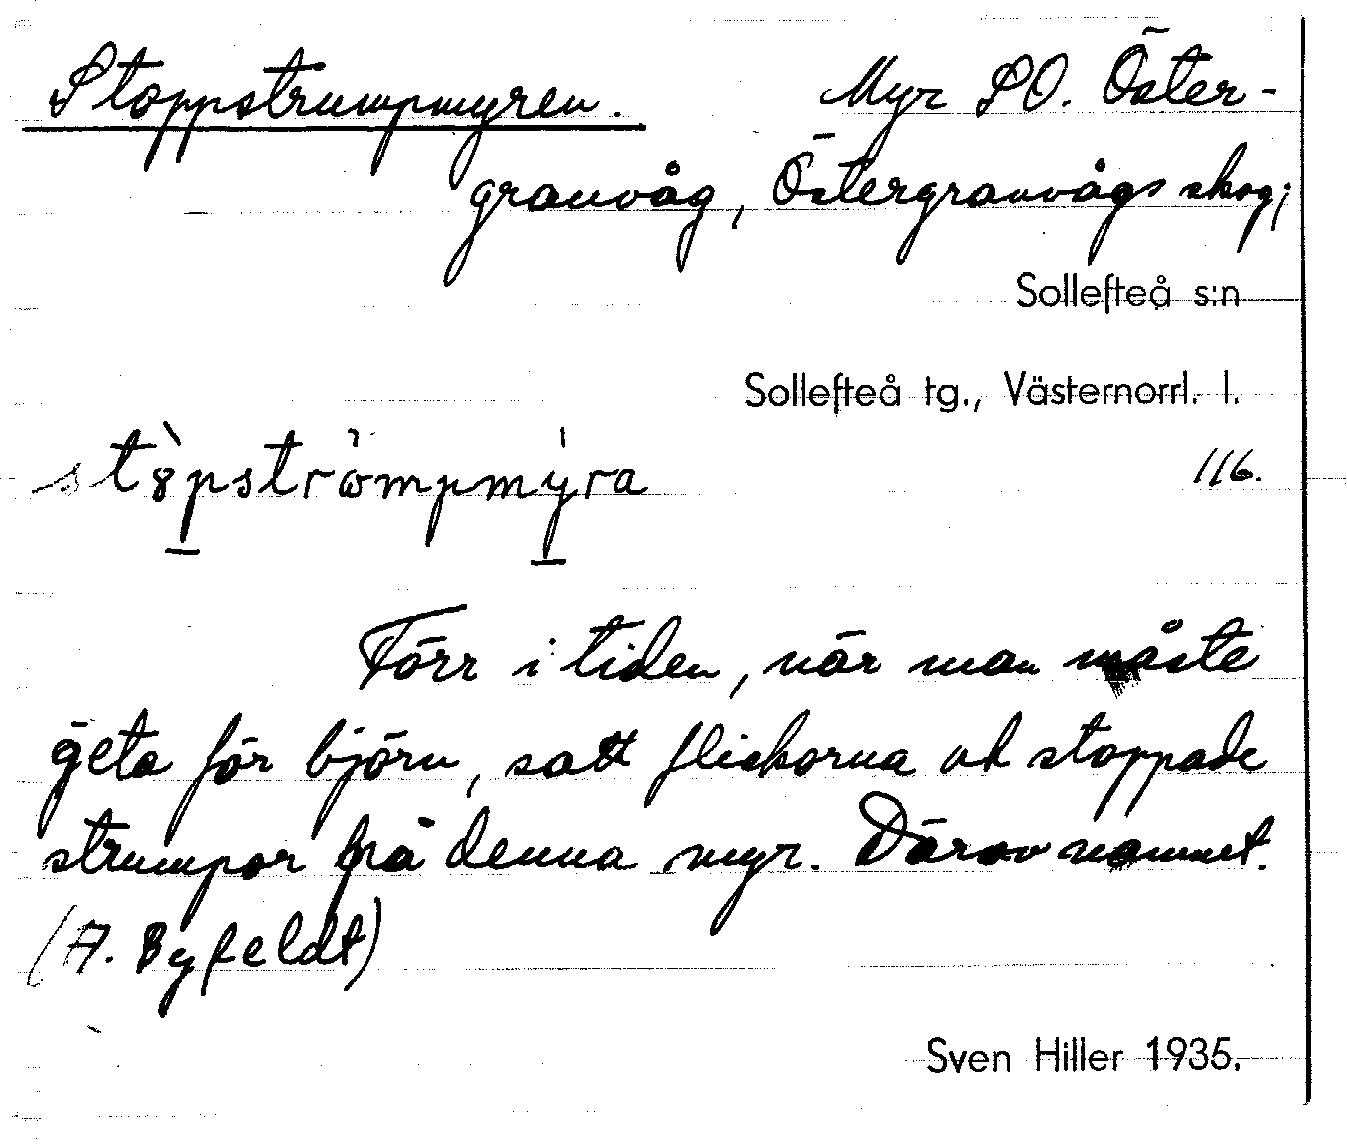 Stoppstrumpmyren. Myr SO. Öster-
granvåg, Östergranvågs skog;
Sollefteå s:n
Sollefteå tg., Västernorrl. l.
116.
Förr i tiden, när man måste
geta för björn, satt flickorna och stoppade
strumpor på denna myr. Därav namnet.
(A. Byfeldt)
Sven Hiller 1935.